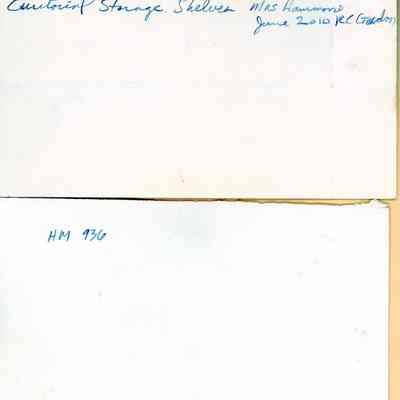 Curitorial Storage Shelves Mrs Hammond
June 2010 RC Gordon
HM 936